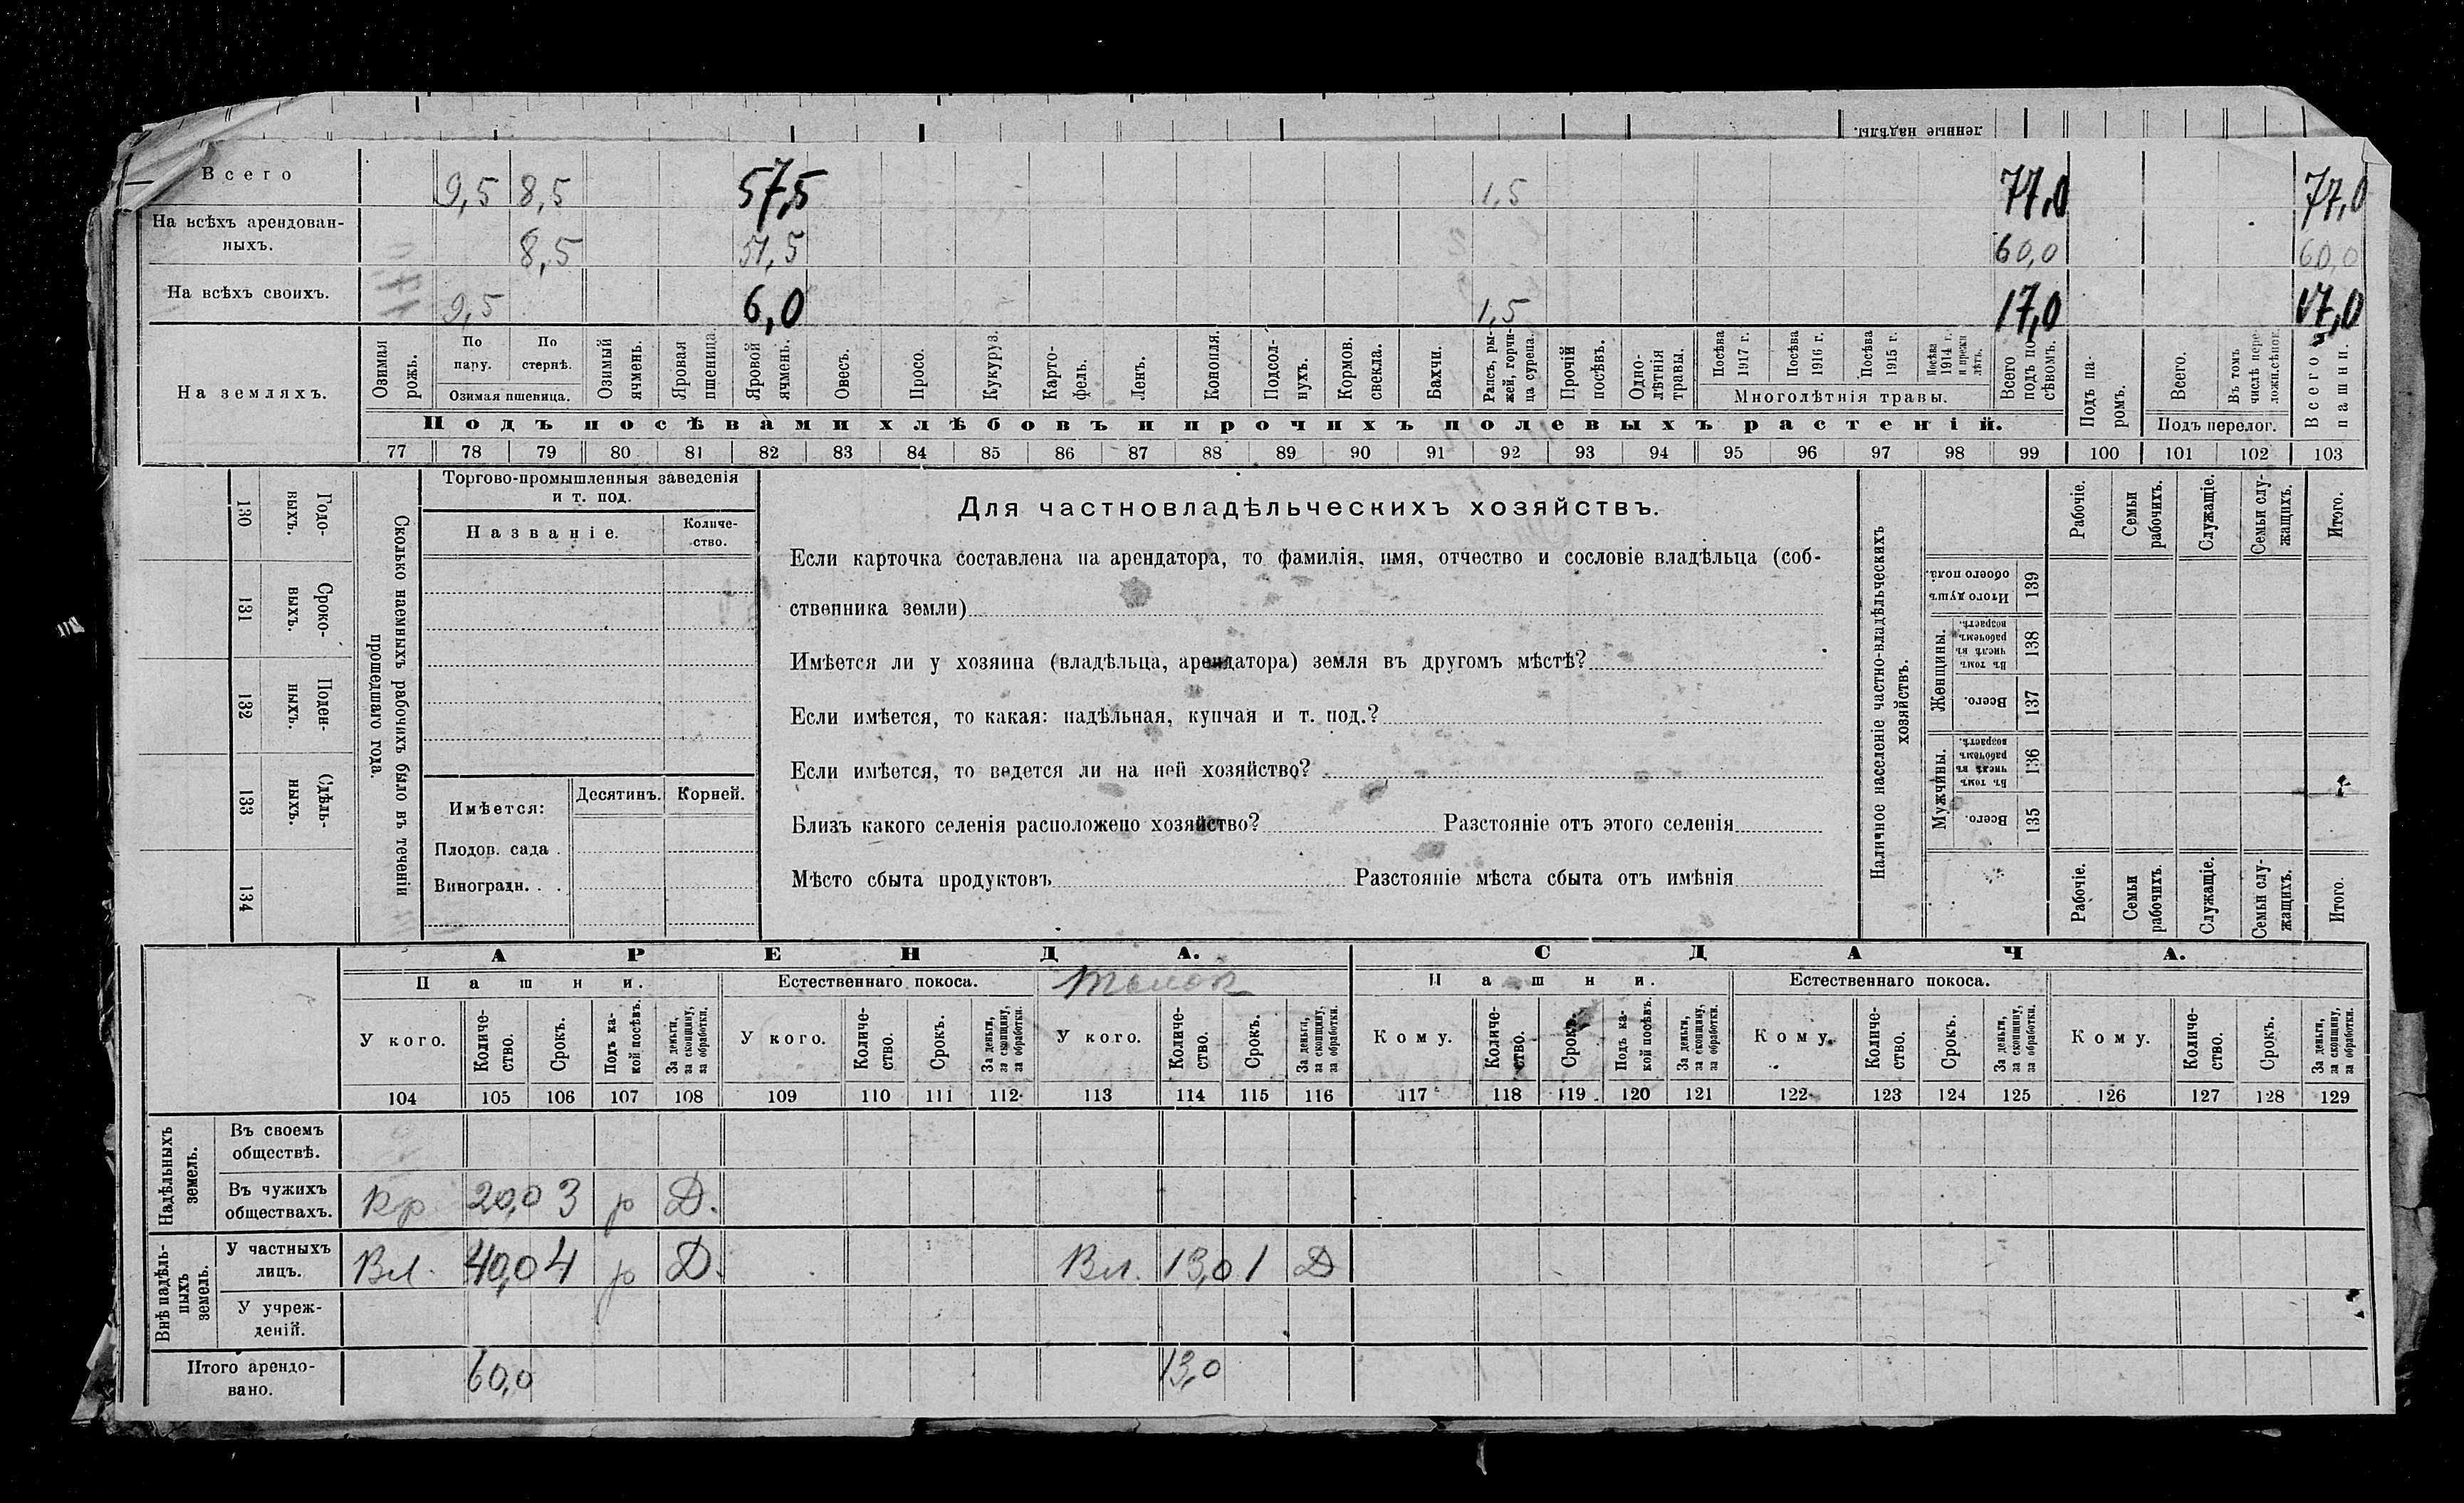 ленные надѣлы.
Всего 9,5 8,5 57,5 1,5 77,0 77,0
На всѣхъ арендован-
ныхъ. 8,5 51,5 60,0 60,0
На всѣхъ своихъ. 9,5 6,0 1,5 17,0 17,0
На земляхъ.
Озимая рожь.
По пару.
По стернѣ.
Озимая пшеница.
Озимый ячмень.
Яровая пшеница.
Яровой ячмень.
Овесъ.
Просо.
Кукуруз.
Карто-
фель.
Ленъ.
Конопля.
Подсол-
нухъ.
Кормов.
свекла.
Бахчи.
Рапсъ, ры-
жей, горчи-
ца сурепа.
Прочій
посѣвъ.
Одно-
лѣтнія
травы.
Посѣва
1917 г.
Посѣва
1916 г.
Посѣва
1915 г.
Посѣва
1914 г.
и прежн
лѣтъ.
Многолѣтнія травы.
Всего
подъ по
сѣвомъ.
Подъ па-
ромъ.
Всего.
Въ томъ
числѣ пере
ложн.сѣнок.
Подъ перелог.
Всего
пашни.
Подъ посѣвами хлѣбовъ и прочихъ полевыхъ растеній.
77 78 79 80 81 82 83 84 85 86 87 88 89 90 91 92 93 94 95 96 97 98 99 100 101 102 103
Сколько наемныхъ рабочихъ было въ теченіи
прошедшаго года.
Годо-
выхъ.
130
Сроко-
выхъ.
131
Поден-
ныхъ.
132
Сдѣль-
ныхъ.
133
134
Торгово-промышленныя заведенія
и т. под.
Названіе.
Количе-
ство.
Имѣется:
Десятинъ.
Корней.
Плодов. сада .
Виноградн. . .
Для частновладѣльческихъ хозяйствъ.
Если карточка составлена на арендатора, то фамилія, имя, отчество и сословіе владѣльца (соб-
ственника земли)
Имѣется ли у хозяина (владѣльца, арендатора) земля въ другомъ мѣстѣ?
Если имѣется, то какая: надѣльная, купчая и т. под.?
Если имѣется, то ведется ли на ней хозяйство?
Близъ какого селенія расположено хозяйство? Разстояніе отъ этого селенія
Мѣсто сбыта продуктовъ Разстояніе мѣста сбыта отъ имѣнія
Наличное населеніе частно-владѣльческихъ
хозяйствъ.
Рабочіе.
Семьи
рабочихъ.
Служащіе.
Семьи слу-
жащихъ.
Итого.
Итого душъ
обоего пола.
139
Женщины.
Въ томъ
числѣ въ
рабочемъ
возрастѣ.
138
Всего.
137
Мужчины.
Въ томъ
числѣ въ
рабочемъ
возрастѣ.
136
Всего.
135
Рабочіе.
Семьи
рабочихъ.
Служащіе.
Семьи слу-
жащихъ.
Итого.
АРЕНДА. СДАЧА.
Пашни. Естественнаго покоса. Толок Пашни. Естественнаго покоса.
У кого.
Количе-
ство.
Срокъ.
Подъ ка-
кой посѣвъ.
За деньги,
за скопщину,
за обработки.
У кого.
Количе-
ство.
Срокъ.
За деньги,
за скопщину,
за обработки.
У кого.
Количе-
ство.
Срокъ.
За деньги,
за скопщину,
за обработки.
Кому.
Количе-
ство.
Срокъ.
Подъ ка-
кой посѣвъ.
За деньги,
за скопщину,
за обработки.
Кому.
Количе-
ство.
Срокъ.
За деньги,
за скопщину,
за обработки.
Кому.
Количе-
ство.
Срокъ.
За деньги,
за скопщину,
за обработки.
104 105 106 107 108 109 110 111 112 113 114 115 116 117 118 119 120 121 122 123 124 125 126 127 128 129
Надѣльныхъ
земель.
Въ своемъ
обществѣ.
Въ чужихъ
обществахъ. Кр. 20,0 3 р Д.
Внѣ надѣль-
ныхъ
земель.
У частныхъ
лицъ. Вл. 40,0 4 р Д. Вл. 13,0 1 Д
У учреж-
деній.
Итого арендо-
вано. 60,0 13,0